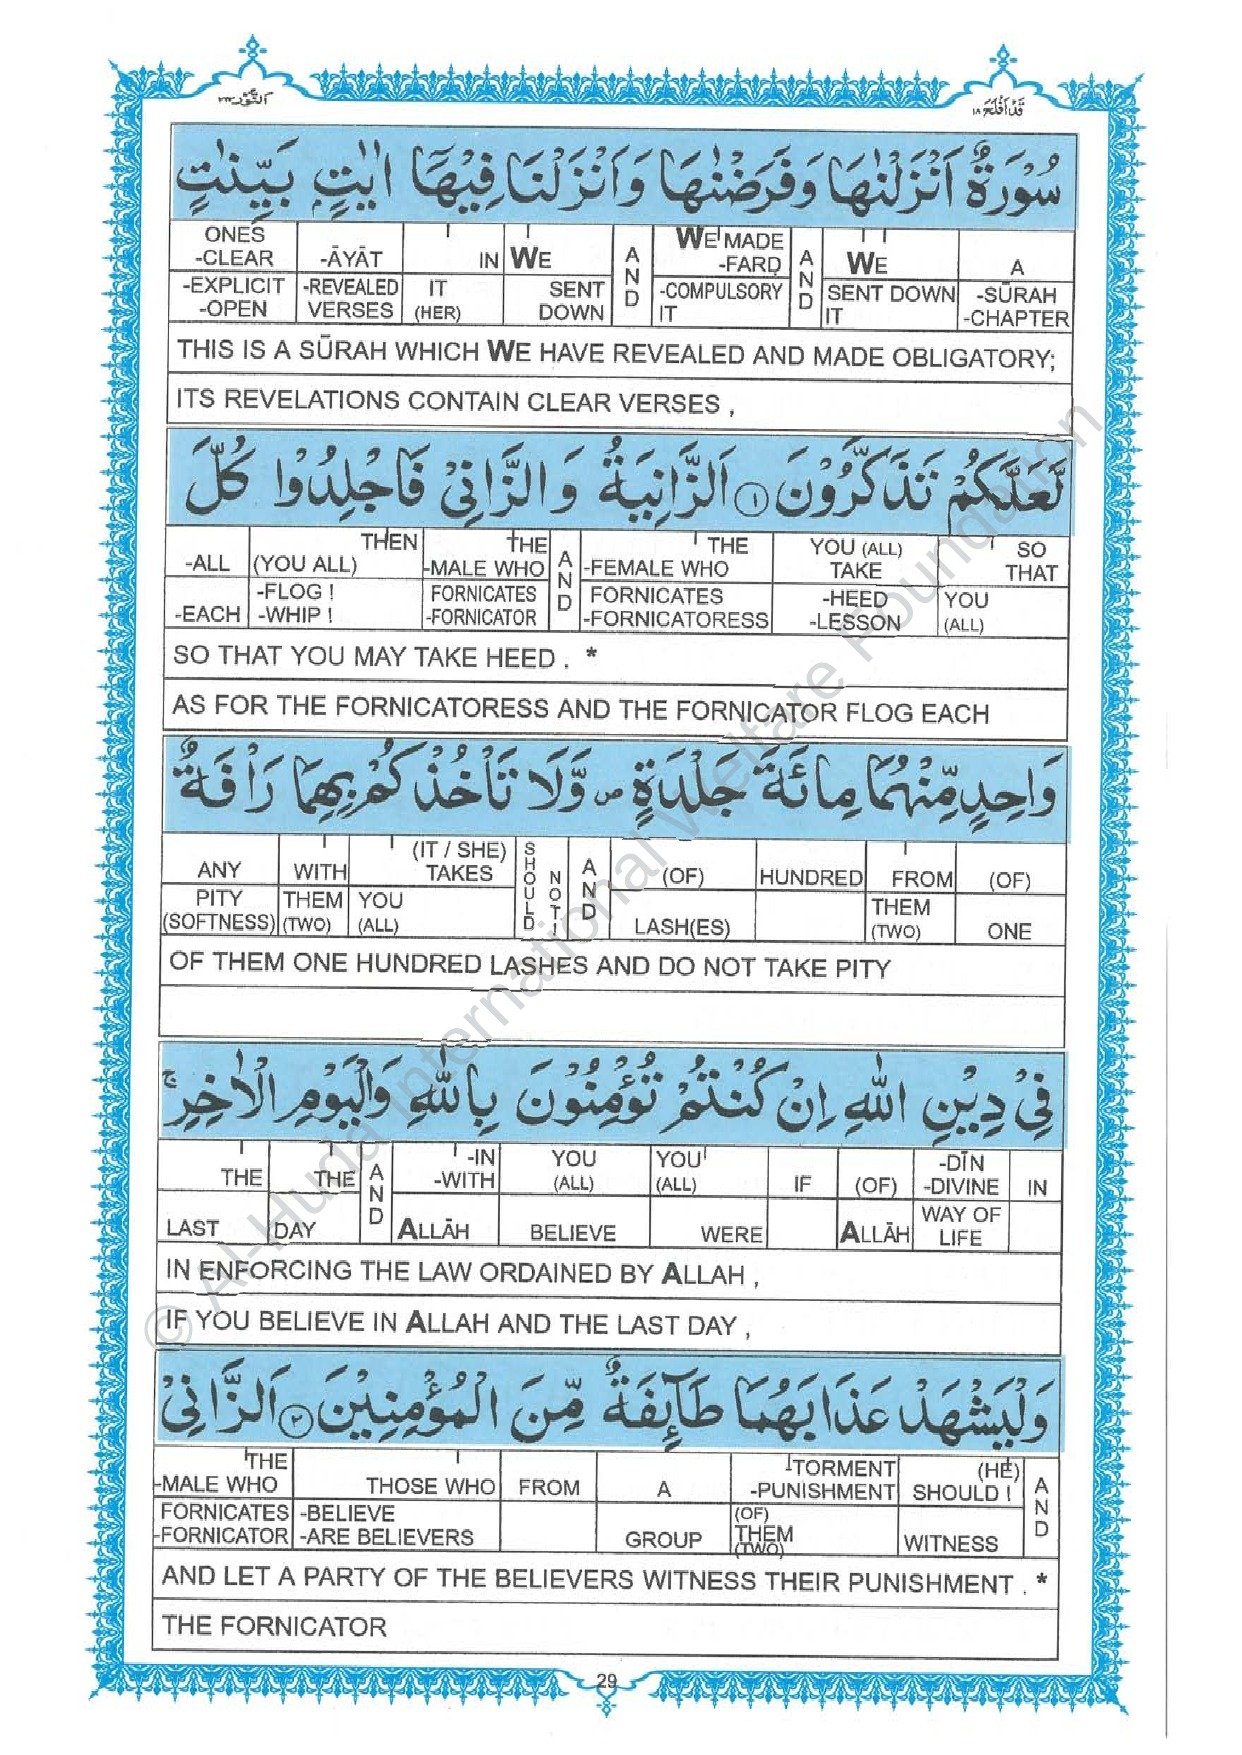 قَدْ اَفْلَحَ ١٨
اَلنُّوْر ٢٤
سُوْرَةٌ اَنْزَلْنٰهَا وَ فَرَضْنٰهَا وَ اَنْزَلْنَا فِيْهَآ اٰيٰتٍۭ بَيِّنٰتٍ
ONES -CLEAR | -ĀYĀT | IN | WE | AND | WE MADE -FARḌ | AND | WE | A
-EXPLICIT -OPEN | -REVEALED VERSES | IT (HER) | SENT DOWN | -COMPULSORY IT | SENT DOWN IT | -SŪRAH -CHAPTER
THIS IS A SŪRAH WHICH WE HAVE REVEALED AND MADE OBLIGATORY;
ITS REVELATIONS CONTAIN CLEAR VERSES ,
لَّعَلَّكُمْ تَذَكَّرُوْنَ ۝١ اَلزَّانِيَةُ وَ الزَّانِيْ فَاجْلِدُوْا كُلَّ
-ALL | THEN (YOU ALL) | THE -MALE WHO | AND | THE -FEMALE WHO | YOU (ALL) TAKE | SO THAT
-EACH | -FLOG ! -WHIP ! | FORNICATES -FORNICATOR | FORNICATES -FORNICATORESS | -HEED -LESSON | YOU (ALL)
SO THAT YOU MAY TAKE HEED . *
AS FOR THE FORNICATORESS AND THE FORNICATOR FLOG EACH
وَاحِدٍ مِّنْهُمَا مِائَةَ جَلْدَةٍ ص وَّلَا تَاْخُذْكُمْ بِهِمَا رَاْفَةٌ
ANY | WITH | (IT / SHE) TAKES | SHOULD NOT ! | AND | (OF) | HUNDRED | FROM | (OF)
PITY (SOFTNESS) | THEM (TWO) | YOU (ALL) | LASH(ES) | THEM (TWO) | ONE
OF THEM ONE HUNDRED LASHES AND DO NOT TAKE PITY
فِيْ دِيْنِ اللّٰهِ اِنْ كُنْتُمْ تُؤْمِنُوْنَ بِاللّٰهِ وَالْيَوْمِ الْاٰخِرِ ج
THE | THE | AND | -IN -WITH | YOU (ALL) | YOU (ALL) | IF | (OF) | -DĪN -DIVINE | IN
LAST | DAY | ALLĀH | BELIEVE | WERE | ALLĀH | WAY OF LIFE
IN ENFORCING THE LAW ORDAINED BY ALLAH ,
IF YOU BELIEVE IN ALLAH AND THE LAST DAY ,
وَلْيَشْهَدْ عَذَابَهُمَا طَآئِفَةٌ مِّنَ الْمُؤْمِنِيْنَ ۝٢ اَلزَّانِيْ
THE -MALE WHO | THOSE WHO | FROM | A | -TORMENT -PUNISHMENT | (HE) SHOULD ! | AND
FORNICATES -FORNICATOR | -BELIEVE -ARE BELIEVERS | GROUP | (OF) THEM (TWO) | WITNESS
AND LET A PARTY OF THE BELIEVERS WITNESS THEIR PUNISHMENT . *
THE FORNICATOR
29
© Al-Huda International Welfare Foundation